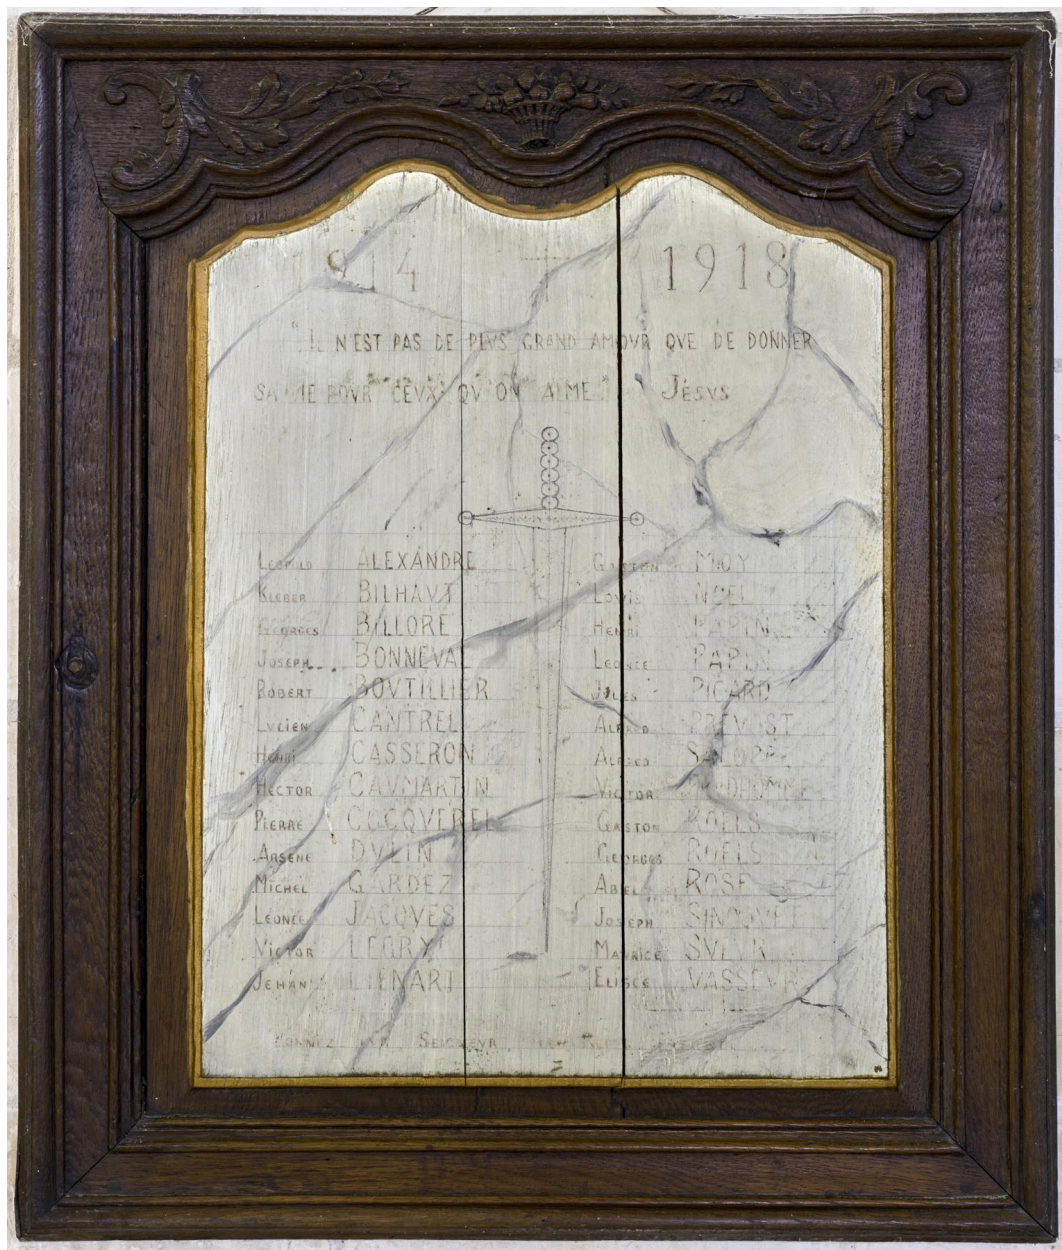 1914 1918
"IL N'EST PAS DE PLVS GRAND AMOVR QVE DE DONNER
SA VIE POVR CEVX QV'ON AIME" JÉSVS
LÉOPOLD ALEXANDRE
KLÉBER BILHAVT
GEORGES BILLORÉ
JOSEPH BONNEVAL
ROBERT BOVTILLIER
LVCIEN CANTREL
HENRI CASSERON
HECTOR CAVMARTIN
PIERRE COCQVEREL
ARSÈNE DVLIN
MICHEL GARDEZ
LÉONCE JACQVES
VICTOR LEGRY
JEHAN LIÉNART
GASTON MOY
LOVIS NOEL
HENRI
LÉONCE PAPIN
JVLES PICARD
ALFRED PRÉVOST
ALFRED
VICTOR
GASTON ROELS
GEORGES ROELS
ABEL ROSE
JOSEPH
MAVRICE SVEVR
ELISÉE VASSEVR
DONNEZ LEVR SEIGNEVR